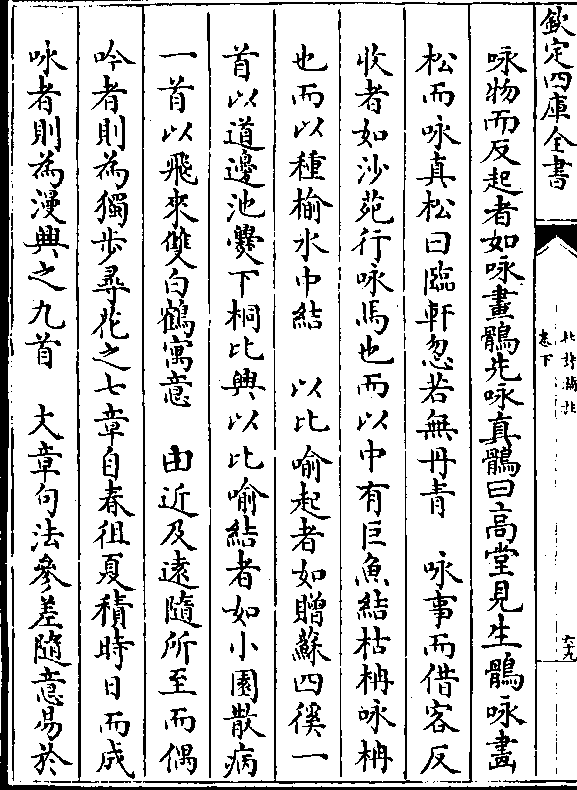 欽定四庫全書
卷下
咏物而反起者如咏畫鶻先咏真鶻曰高堂見生鶻咏畫
松而咏真松曰臨軒忽若無丹青　咏事而借客反
收者如沙苑行咏馬也而以中有巨魚結枯柟咏柟
也而以種榆水中結　以比喻起者如贈蘇四徯一
首以道邊池㸑下桐比興以比喻結者如小園散病
一首以飛來雙白鶴寓意　由近及遠隨所至而偶
吟者則為獨步尋花之七章自春徂夏積時日而成
咏者則為漫興之九首　大章句法參差隨意易於